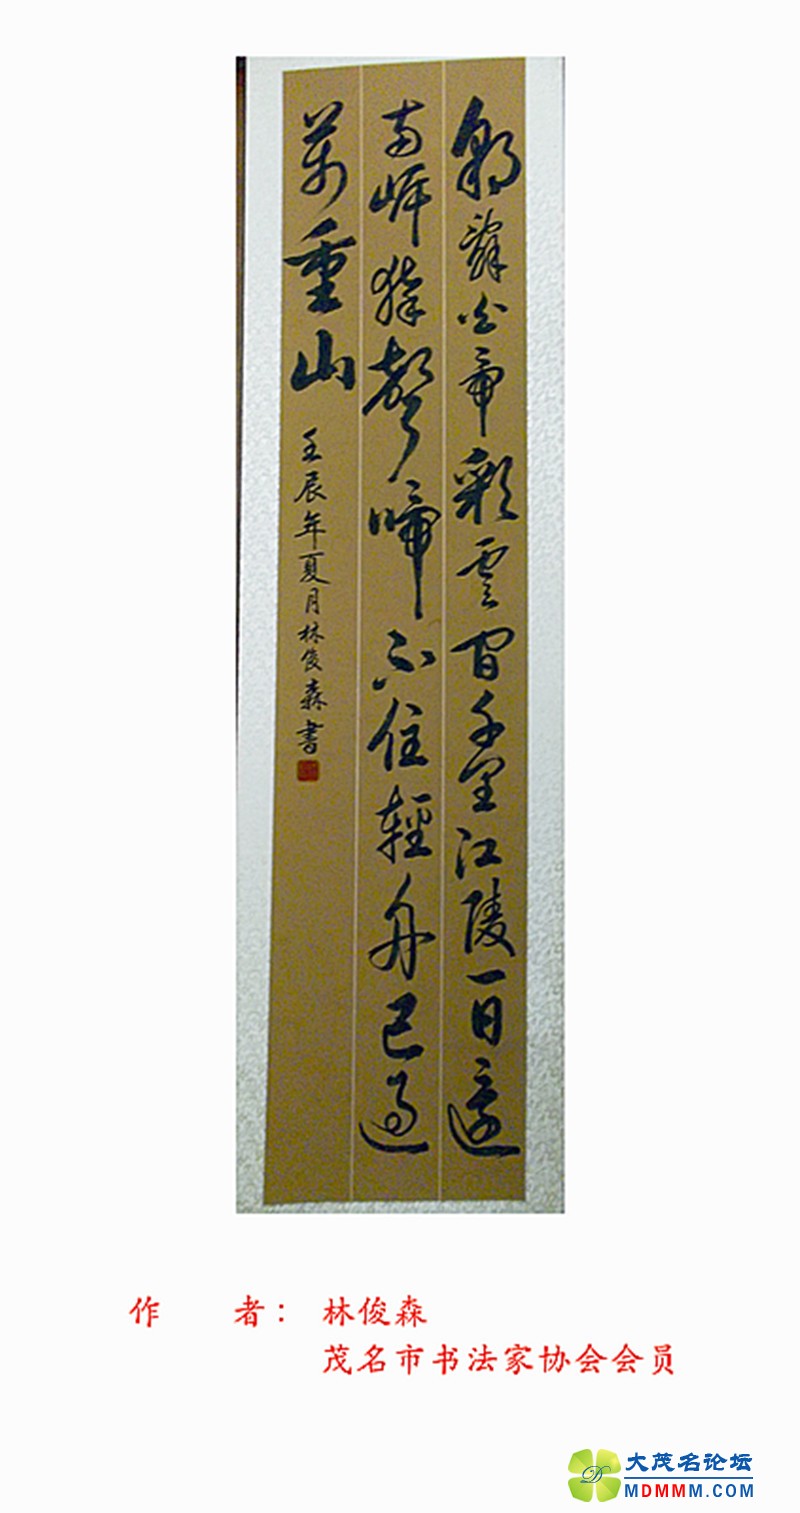 朝辭白帝彩雲間千里江陵一日還
兩岸猿聲啼不住輕舟已過
萬重山
壬辰年夏月林俊森書
作 者：林俊森
茂名市书法家协会会员
大茂名论坛
MDMMM.COM